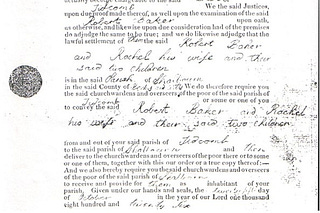 We the said Justices,
upon due proof made thereof, as well upon the examination of the said
Robert Baker upon oath,
as otherwise, and likewise upon due consideration had of the premises
do adjudge the same to be true; and we do likewise adjudge that the
lawful settlement of the said Robert Baker
and Rachel his wife and their
said two children
is in the said Parish of
in the said County of We do therefore require you
the said churchwardens and overseers of the poor of the said parish of
Tidcomb or some or one of you
to convey the said Robert Baker and Rachel
his wife and their said two children
from and out of your said parish of Tidcomb
to the said parish of and them
deliver to the churchwardens and overseers of the poor there or to some
or one of them, together with this our order or a true copy thereof:—
And we also hereby require you the said churchwardens and overseers
of the poor of the said parish of
to receive and provide for them as inhabitant of your
parish. Given under our hands and seals, the day
of in the year of our Lord one thousand
eight hundred and twenty six